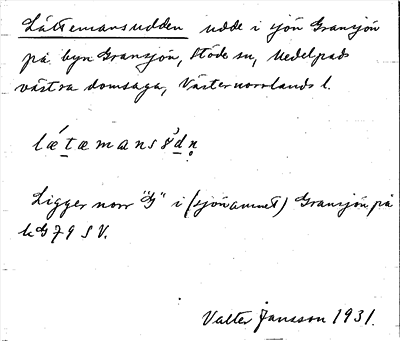 Lättemansudden udde i sjön Gransjön
på byn Gransjön, Stöde sn, Medelpads
västra domsaga, Västernorrlands l.
lǽtæmans
Ligger norr "G" i (sjönamnet) Gransjön på
k G 79 S V.
Valter Jansson 1931.